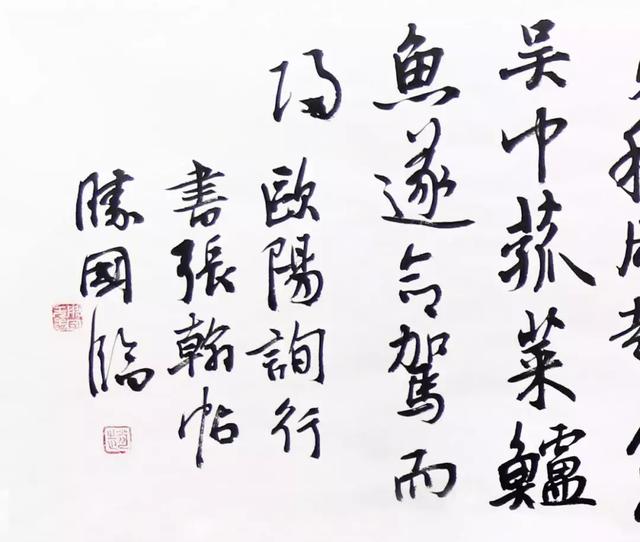 吳中菰菜鱸
魚遂命駕而
歸
歐陽詢行
書張翰帖
勝國臨